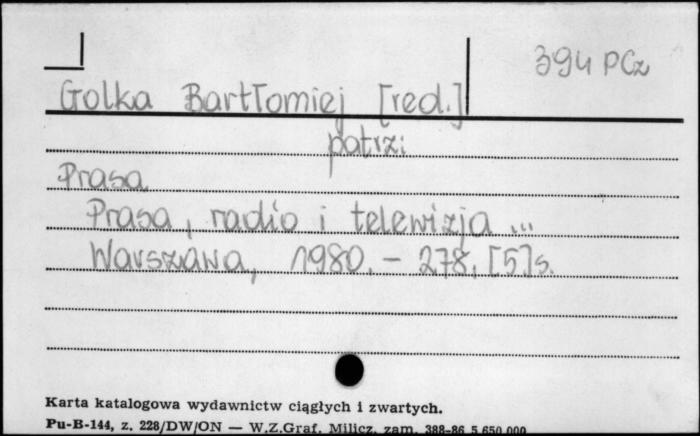 394 PCz
Golka Bartłomiej [red.]
patrz:
Prasa
Prasa, radio i telewizja ...
Warszawa, 1980. – 278, [5] s.
Karta katalogowa wydawnictw ciągłych i zwartych.
Pu-B-144, z. 228/DW/ON — W.Z.Graf. Milicz, zam. 388-86 5.650.000